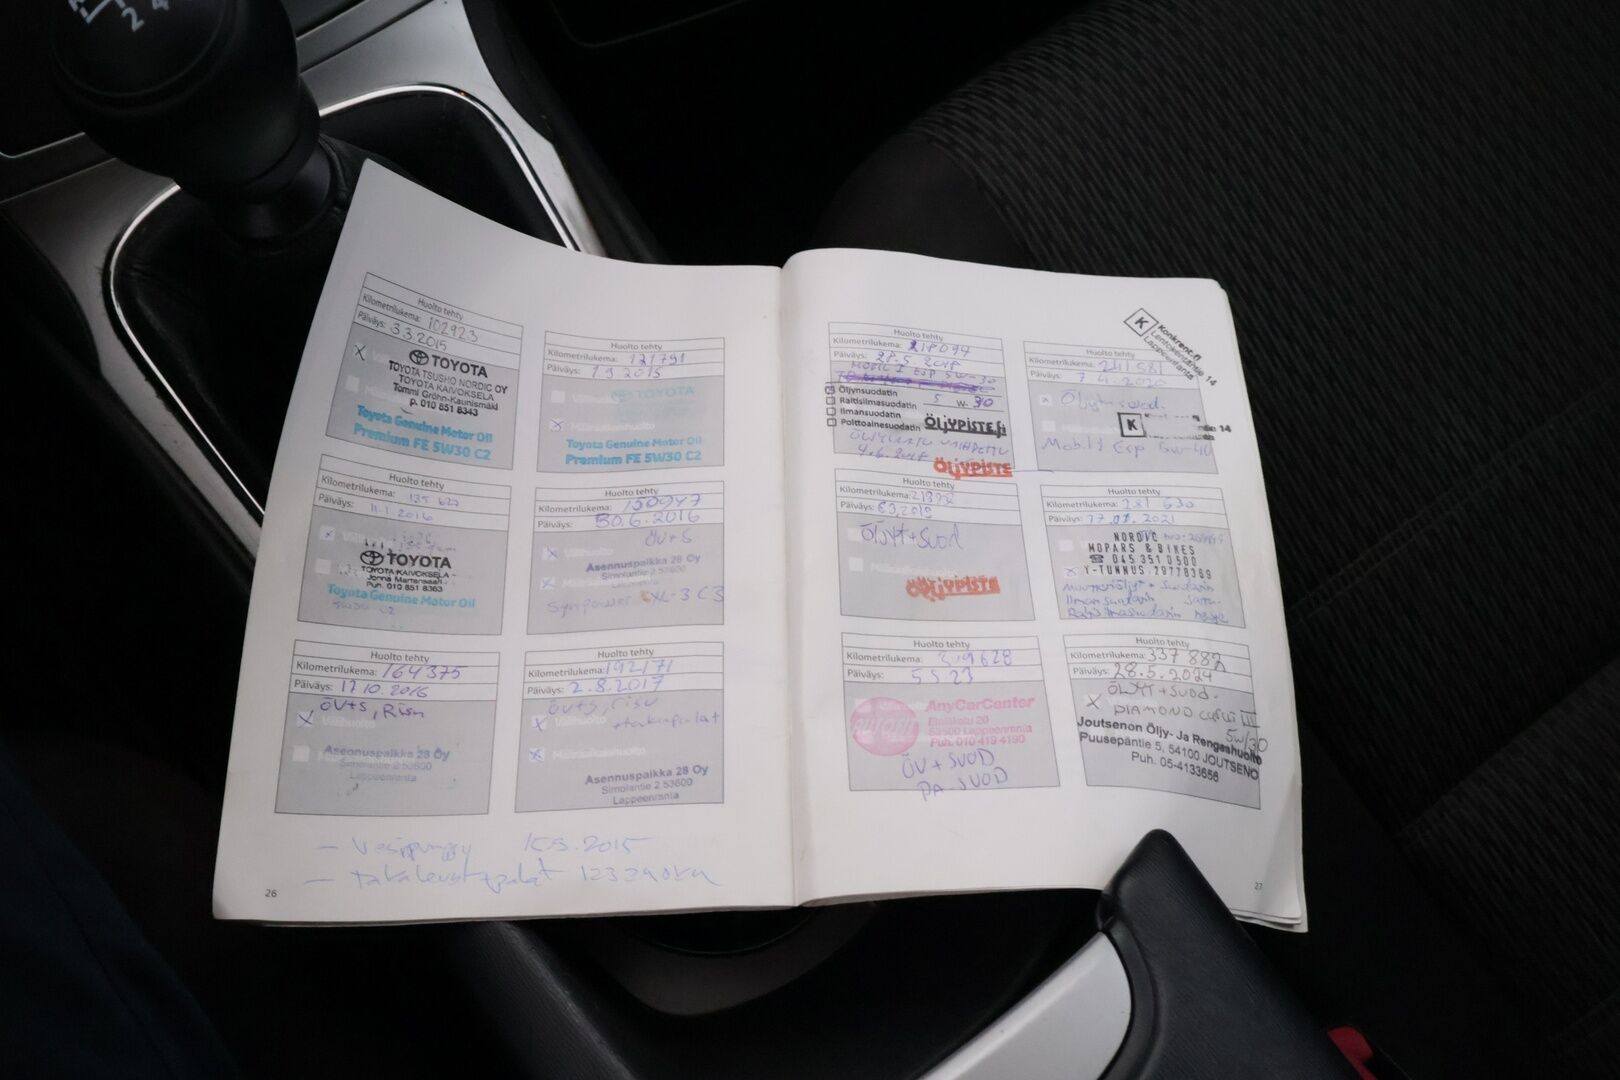 2
4
Huolto tehty
Kilometrilukema: 102923
Päiväys: 3.3.2015
TOYOTA
TOYOTA TSUSHO NORDIC OY
TOYOTA KAIVOKSELA
Tommi Gröhn-Kaunismäki
p. 010 851 8343
Toyota Genuine Motor Oil
Premium FE 5W30 C2
Huolto tehty
Kilometrilukema: 121791
Päiväys: 1.9.2015
TOYOTA
Toyota Genuine Motor Oil
Premium FE 5W30 C2
Huolto tehty
Kilometrilukema: 135 627
Päiväys: 11.1.2016
TOYOTA
TOYOTA KAIVOKSELA
Puh. 010 851 8363
Toyota Genuine Motor Oil
5W30 C2
Huolto tehty
Kilometrilukema: 150947
Päiväys: 30.6.2016
ÖV+S
Välihuolto
Asennuspaikka 28 Oy
Simolantie 2 53600
Lappeenranta
Synpower XL-3 C3
Huolto tehty
Kilometrilukema: 164375
Päiväys: 17.10.2016
ÖV+S, Risu
Välihuolto
Asennuspaikka 28 Oy
Simolantie 2 53600
Lappeenranta
Huolto tehty
Kilometrilukema: 192171
Päiväys: 2.8.2017
ÖV+S, risu
Välihuolto
Määräaikaishuolto
Asennuspaikka 28 Oy
Simolantie 2 53600
Lappeenranta
- Vesipumppu 15.9.2015
- takalevyt+palat
26
Huolto tehty
Kilometrilukema: 218094
Päiväys: 28.5.2018
MOBIL 1 ESP 5W-30
Öljynsuodatin 5 W- 30
Raitisilmasuodatin
Ilmansuodatin
Polttoainesuodatin
ÖLJYPISTE.fi
4.6.2018
ÖLJYPISTE
Huolto tehty
Kilometrilukema: 241581
Päiväys: 7.4.2020
K Konkrent.fi
Lentokentäntie 14
Lappeenranta
Öljyt+suod.
K
14
Mobil 1 Esp 5w-40
Huolto tehty
Kilometrilukema:
Päiväys:
ÖLJYT+SUOD
ÖLJYPISTE
Huolto tehty
Kilometrilukema: 281 630
Päiväys: 2021
NORDIC
MOPARS & BIKES
☎ 045 351 0500
Y-TUNNUS 29778369
Moottoriöljyt + suodatin
Ilmansuodatin
Raitisilmasuodatin
Huolto tehty
Kilometrilukema: 319628
Päiväys: 5 5 23
AnyCarCenter
Eteläkatu 20
53500 Lappeenranta
Puh. 010 419 4190
ÖV + SUOD
PA-SUOD
Huolto tehty
Kilometrilukema: 337 882
Päiväys: 28.5.2024
ÖLJYT+SUOD.
DIAMOND CUPUS III
5W/30
Joutsenon Öljy- Ja Rengashuolto
Puusepäntie 5, 54100 JOUTSENO
Puh. 05-4133656
27